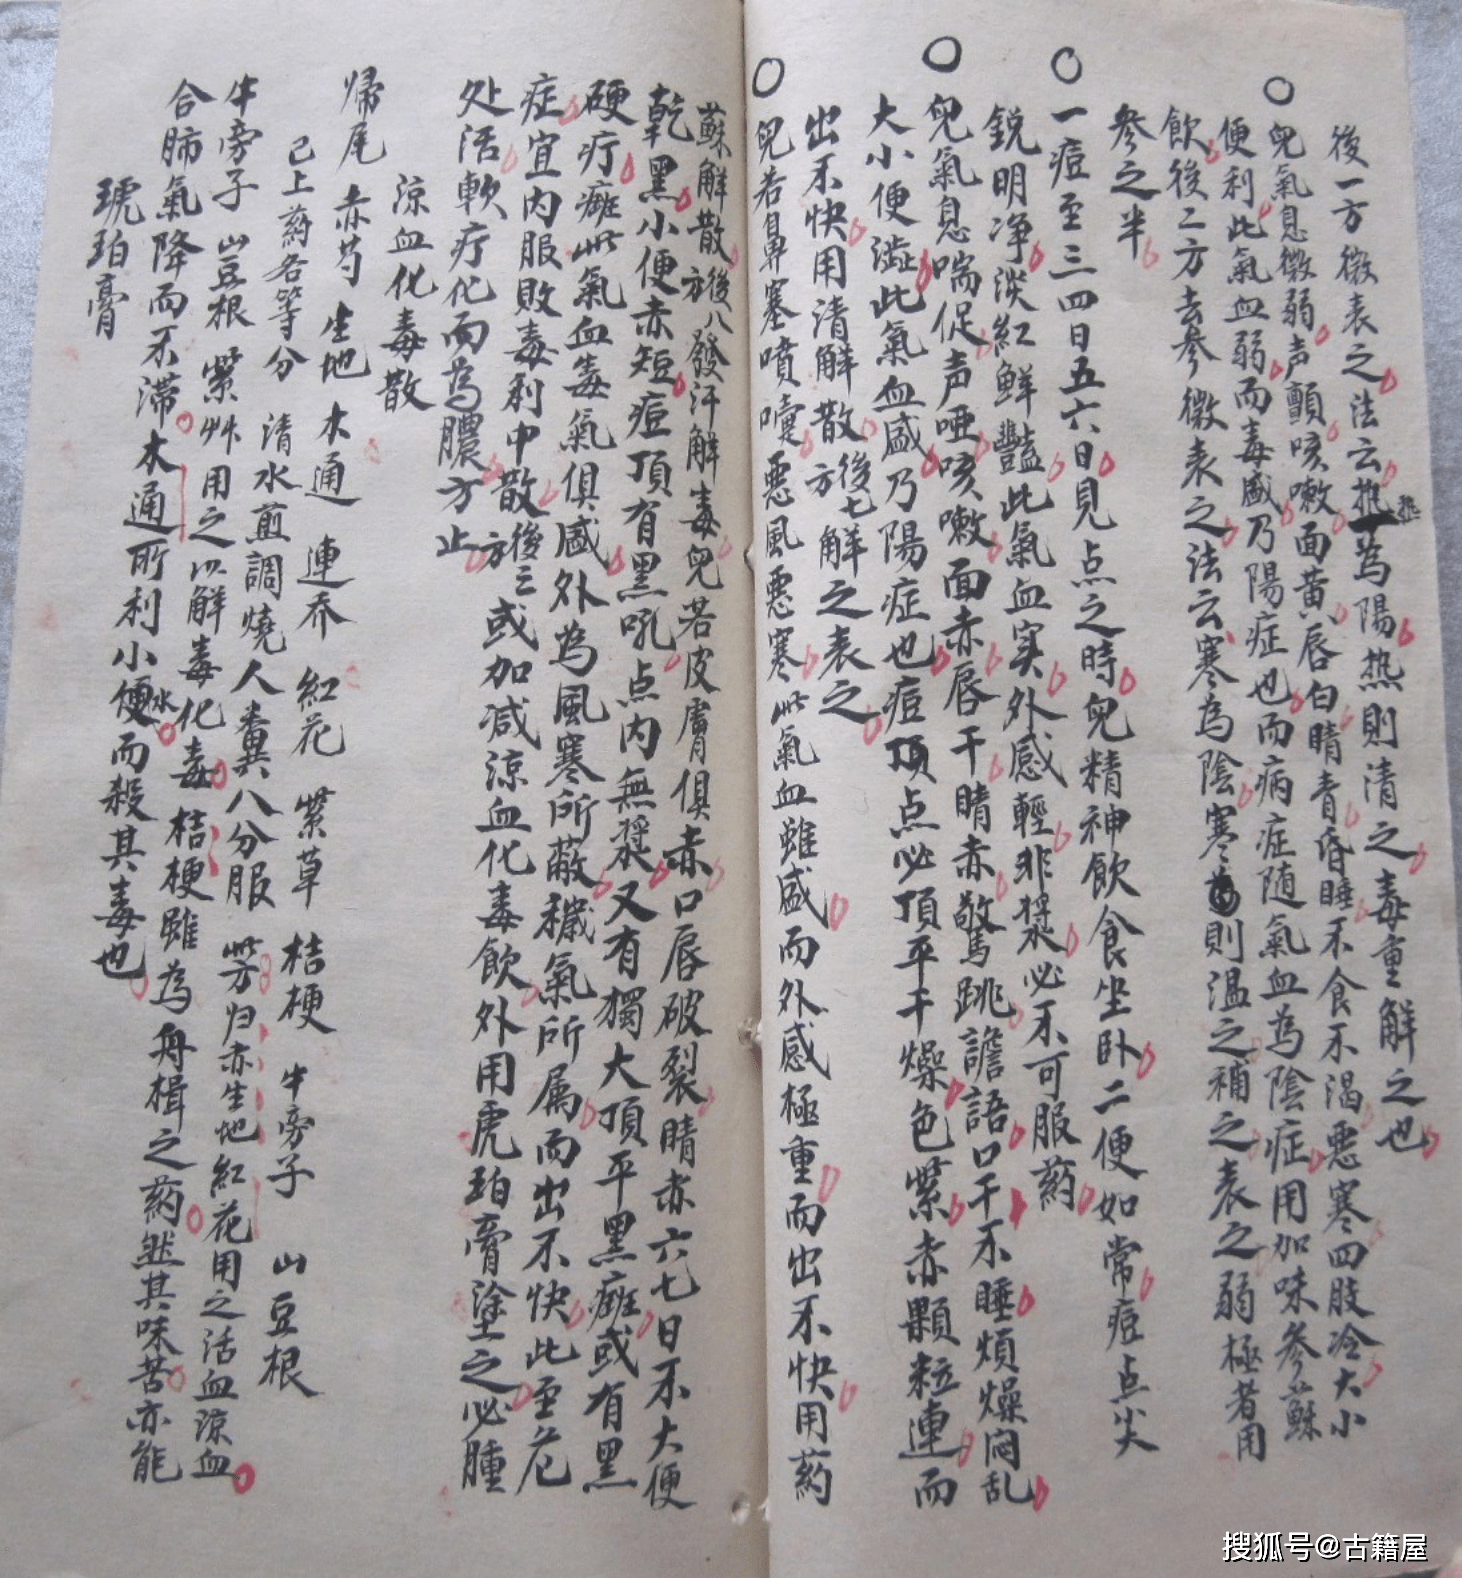 後一方微表之法云熱為陽热則清之毒重解之也
熱
〇兒氣息微弱声顫咳嗽面黄唇白睛青昏睡不食不渴惡寒四肢冷大小
便利此氣血弱而毒盛乃陽症也而病症随氣血為陰症用加味參蘇
飲後二方去參微表之法云寒為陰寒則温之補之表之弱極者用
參之半
〇一痘至三四日五六日見点之時兒精神飲食坐卧二便如常痘点尖
鋭明净淡紅鮮豔此氣血实外感輕非漿必不可服药
〇兒氣息喘促声哑咳嗽面赤唇干睛赤驚跳譫語口干不睡煩燥悶乱
大小便澁此氣血盛乃陽症也痘頂点必頂平干燥色紫赤顆粒連而
出不快用清解散後七方解之表之
〇兒若鼻塞噴嚏惡風惡寒此氣血雖盛而外感極重而出不快用药
蘇解散後八方發汗解毒兒若皮膚俱赤口唇破裂睛赤六七日不大便
乾黑小便赤短痘頂有黑吼点内無漿又有獨大頂平黑癍或有黑
硬疔癍此氣血毒氣俱盛外為風寒所蔽穢氣所属而出不快此至危
症宜内服敗毒利中散後三方或加减涼血化毒飲外用虎珀膏塗之必腫
处活軟疔化而為膿方止
涼血化毒散
帰尾 赤芍 生地 木通 連乔 紅花 紫草 桔梗 牛旁子 山豆根
已上药各等分 清水煎調燒人糞八分服 劳归赤生地紅花用之活血涼血
牛旁子 山豆根 紫艸用之以解毒化毒桔梗雖為舟楫之药然其味苦亦能
合肺氣降而不滞木通所利小便水而殺其毒也
琥珀膏
搜狐号@古籍屋